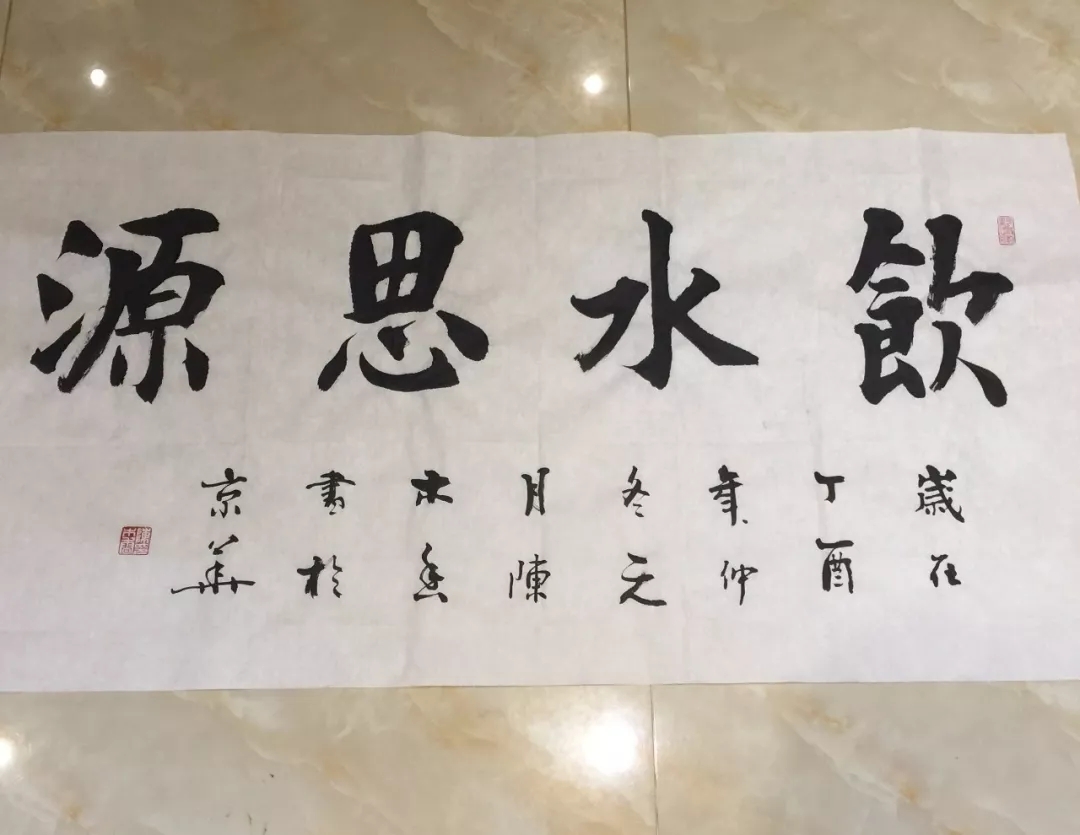 飲水思源
歲在
丁酉
年仲
冬元
月陳
木香
書於
京華